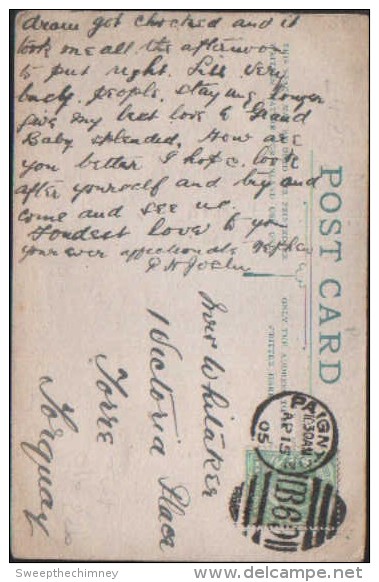 drain got chocked and it
took me all the afternoon
to put right. Still very
busy. people staying longer
give my best love to Grand
Baby splended. How are
you better I hope. look
after yourself and try and
come and see us.
Fondest love to you
your ever affectionate Nephew
POST CARD
ONLY THE ADDRESS
Whitaker
1 Victoria Place
Torre
Torquay
PAIGN
10 30AM
AP 15
05
B69
Sweepthechimney
www.delcampe.net